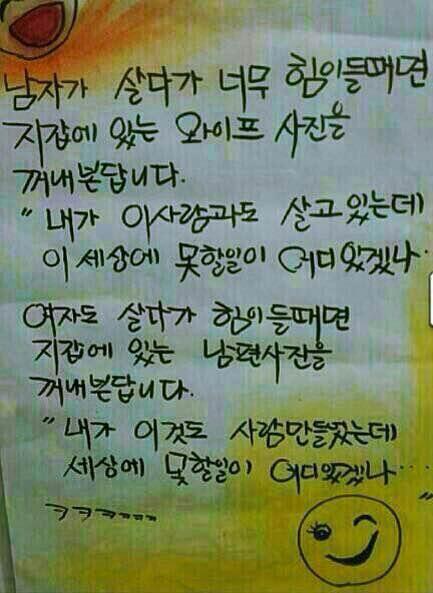 남자가 살다가 너무 힘이들때면
지갑에 있는 와이프 사진을
꺼내본답니다.
"내가 이사람과도 살고있는데
이 세상에 못할일이 어디있겠나..
여자도 살다가 힘이들때면
지갑에 있는 남편사진을
꺼내본답니다.
"내가 이것도 사람만들었는데
세상에 못할일이 어디있겠나..."
ㅋㅋㅋㅋㅋㅋ